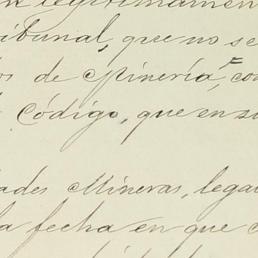 legítimamen
ribunal, que no se
os de Minería, con
Código, que en su
ades Mineras, lega
la fecha en que